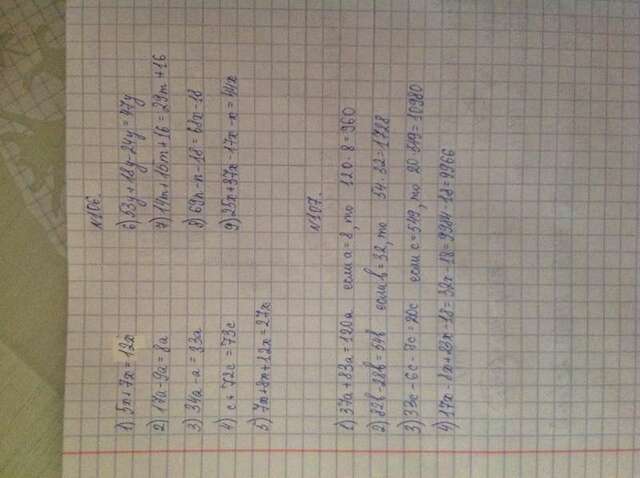 №106.
1) 5x+7x=12x
2) 17a-9a=8a
3) 34a-a=33a
4) c+72c=73c
5) 7x+8x+12x=27x
6) 53y+18y-24y=47y
7) 14m+15m+16=29m+16
8) 69n-n-18=68x-18
9) 25x+37x-17x-x=44x
№107.
1) 37a+83a=120a если a=8, то 120·8=960
2) 82b-28b=54b если b=32, то 54·32=1728
3) 33c-6c-7c=20c если c=549, то 20·549=10980
4) 17x-8x+23x-18=32x-18=9984-18=9966